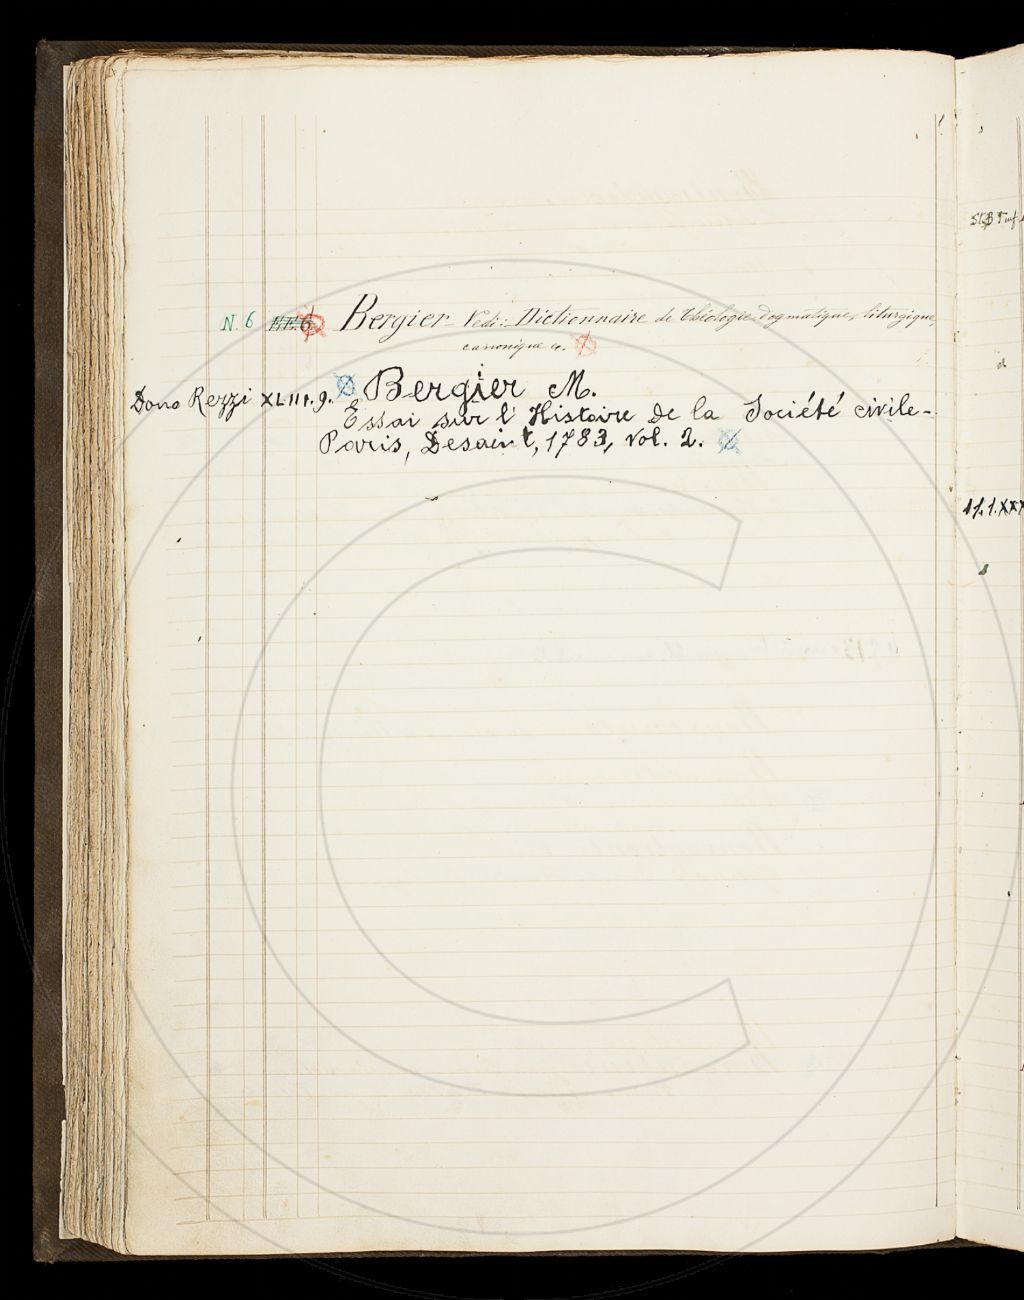 N. 6 EE.6 Bergier - Vedi: - Dictionnaire de Théologie dogmatique, liturgique,
canonique &.
Dono Rezzi XLII r. 9. Bergier M.
Essai sur l' Histoire de la Société civile -
Paris, Desaint, 1783, vol. 2.